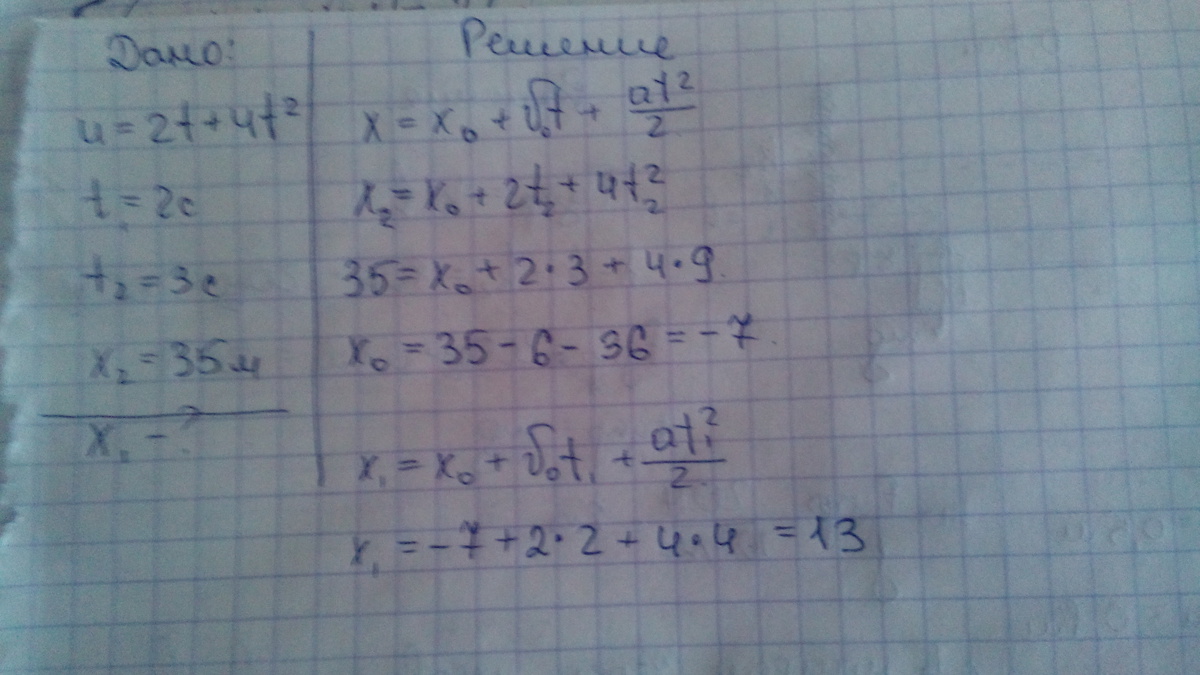 Дано:
u = 2t + 4t²
t₁ = 2с
t₂ = 3с
x₂ = 35м
x₁ - ?
Решение
x = x₀ + v₀t + at²/2
x₂ = x₀ + 2t₂ + 4t₂²
35 = x₀ + 2·3 + 4·9.
x₀ = 35 - 6 - 36 = -7.
x₁ = x₀ + v₀t₁ + at₁²/2
x₁ = -7 + 2·2 + 4·4 = 13